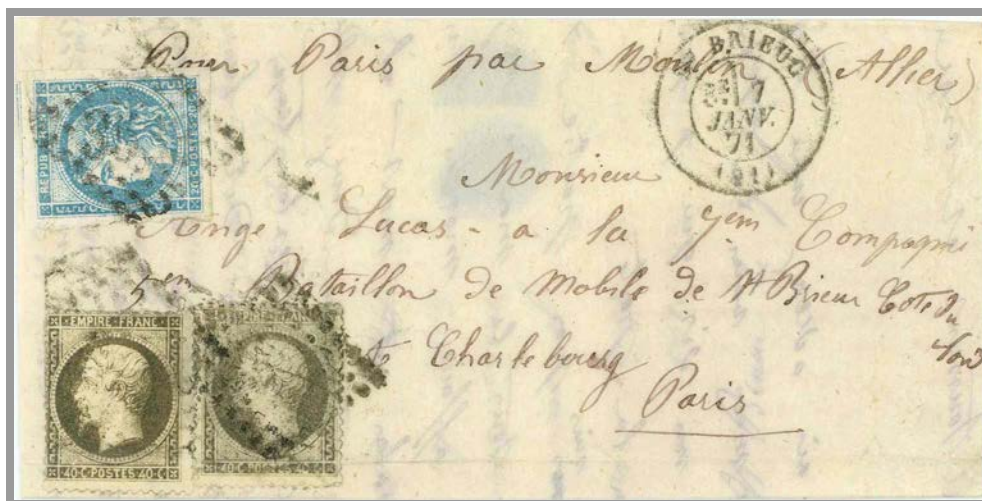 Pour Paris par Moulin (Allier)
BRIEUC
7
JANV.
71
(21)
REPUB
20 C POSTES 20 C
Monsieur
Ange Lucas - a la 7em Compagni
5em Bataillon de Mobile de St Brieu Cote du
Nord
Charlebourg
Paris
EMPIRE FRANC
40 C POSTES 40 C
EMPIRE FRANC
40 C POSTES 40 C